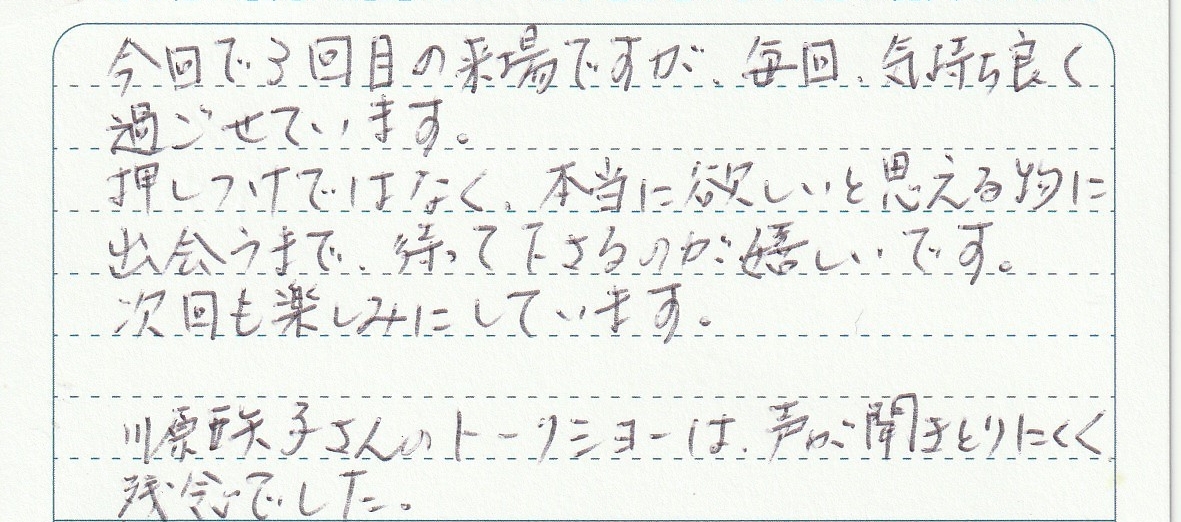 今回で3回目の来場ですが、毎回、気持ち良く
過ごせています。
押しつけではなく、本当に欲しいと思える物に
出会うまで、待って下さるのが嬉しいです。
次回も楽しみにしています。
川原亜矢子さんのトークショーは、声が聞きとりにくく
残念でした。